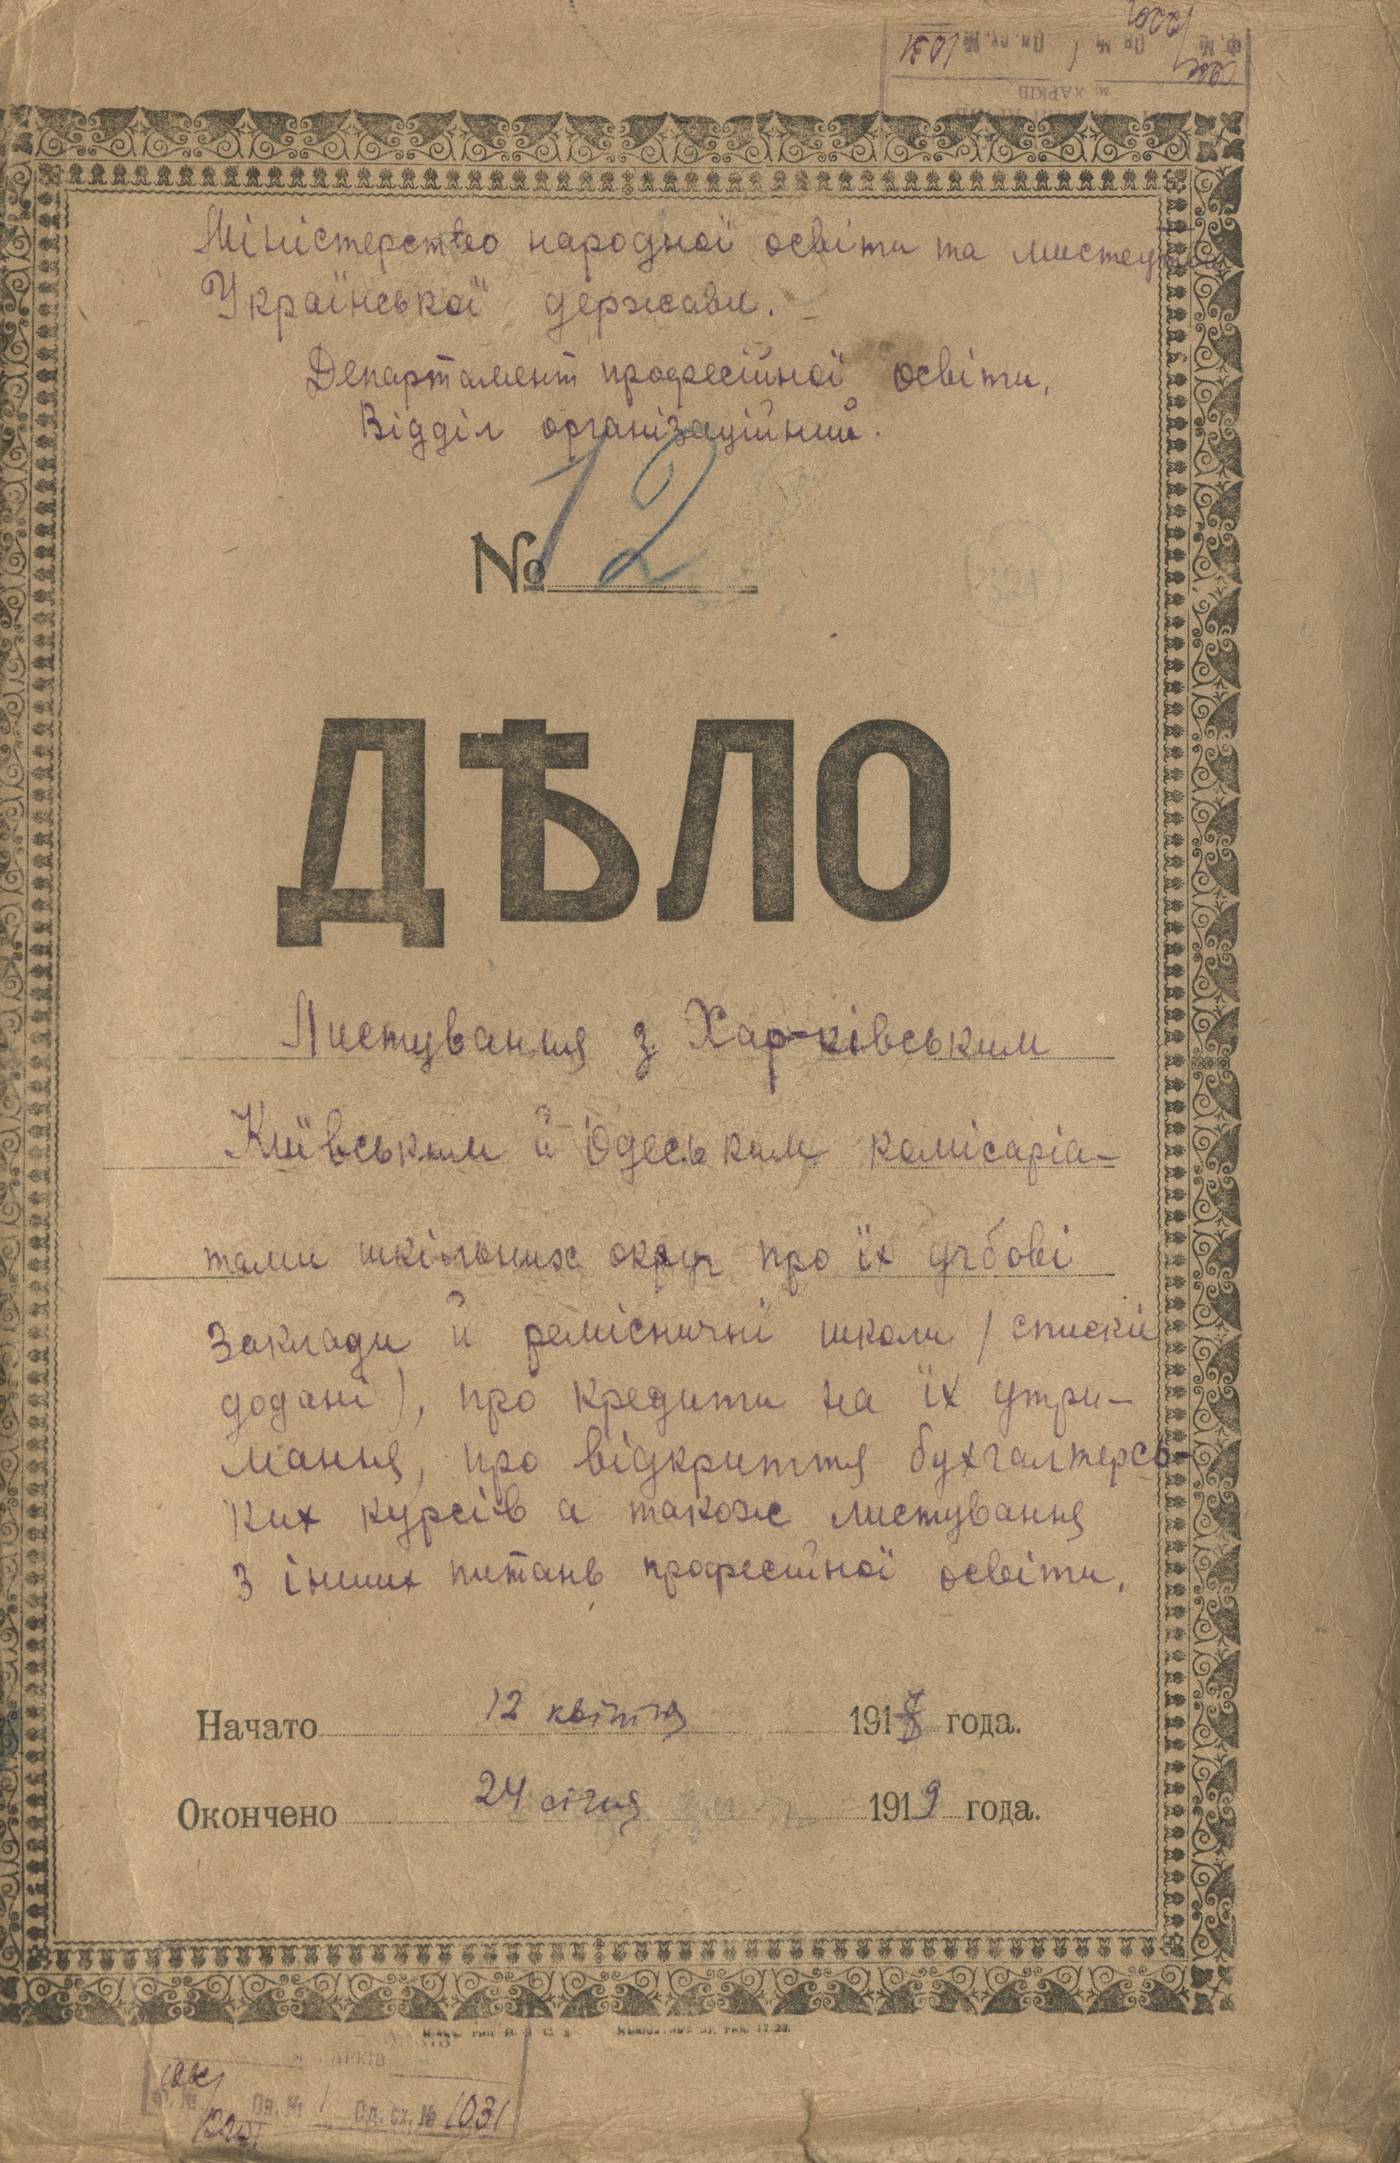 Міністерство народної освіти та мистецтва
Української держави.
Департамент професійної освіти,
Відділ організаційний.
№ 12
ДѢЛО
Листування з Харківським
Київським й Одеським комісаріа-
тами шкільних округ про їх учбові
заклади й ремісничні школи / списки
додані), про кредити на їх утри-
мання, про відкриття бухгалтерсь-
ких курсів а також листування
з інших питань професійної освіти.
Начато 12 квітня 1918 года.
Окончено 24 січня 1919 года.
м. ХАРКІВ
Ф. № 2201 Оп. № 1 Од. сх. № 1031
м. ХАРКІВ
Ф. № 2201 Оп. № 1 Од. сх. № 1031